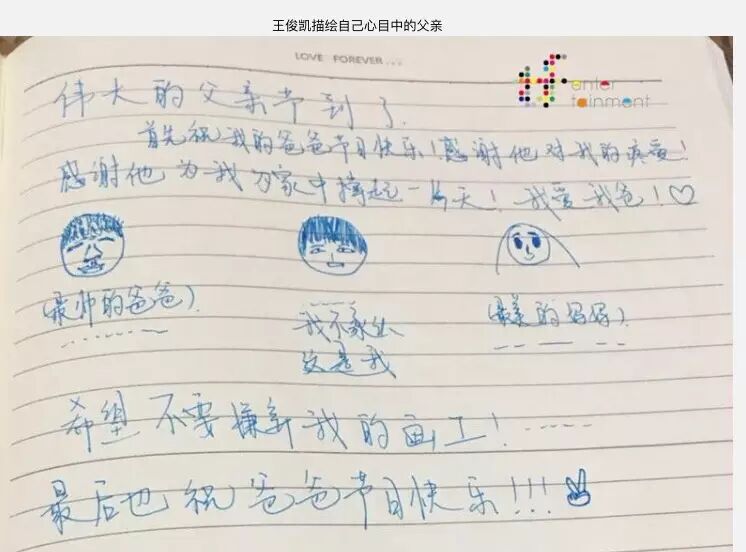 王俊凯描绘自己心目中的父亲
LOVE FOREVER...
enter
tainment
伟大的父亲节到了.
首先祝我的爸爸节日快乐!感谢他对我的疼爱!
感谢他为我为家中撑起一片天! 我爱我爸!♡
(最帅的爸爸).
(最美的妈妈).
我不承认
这是我
希望不要嫌弃我的画工!
最后也祝爸爸节日快乐!!!